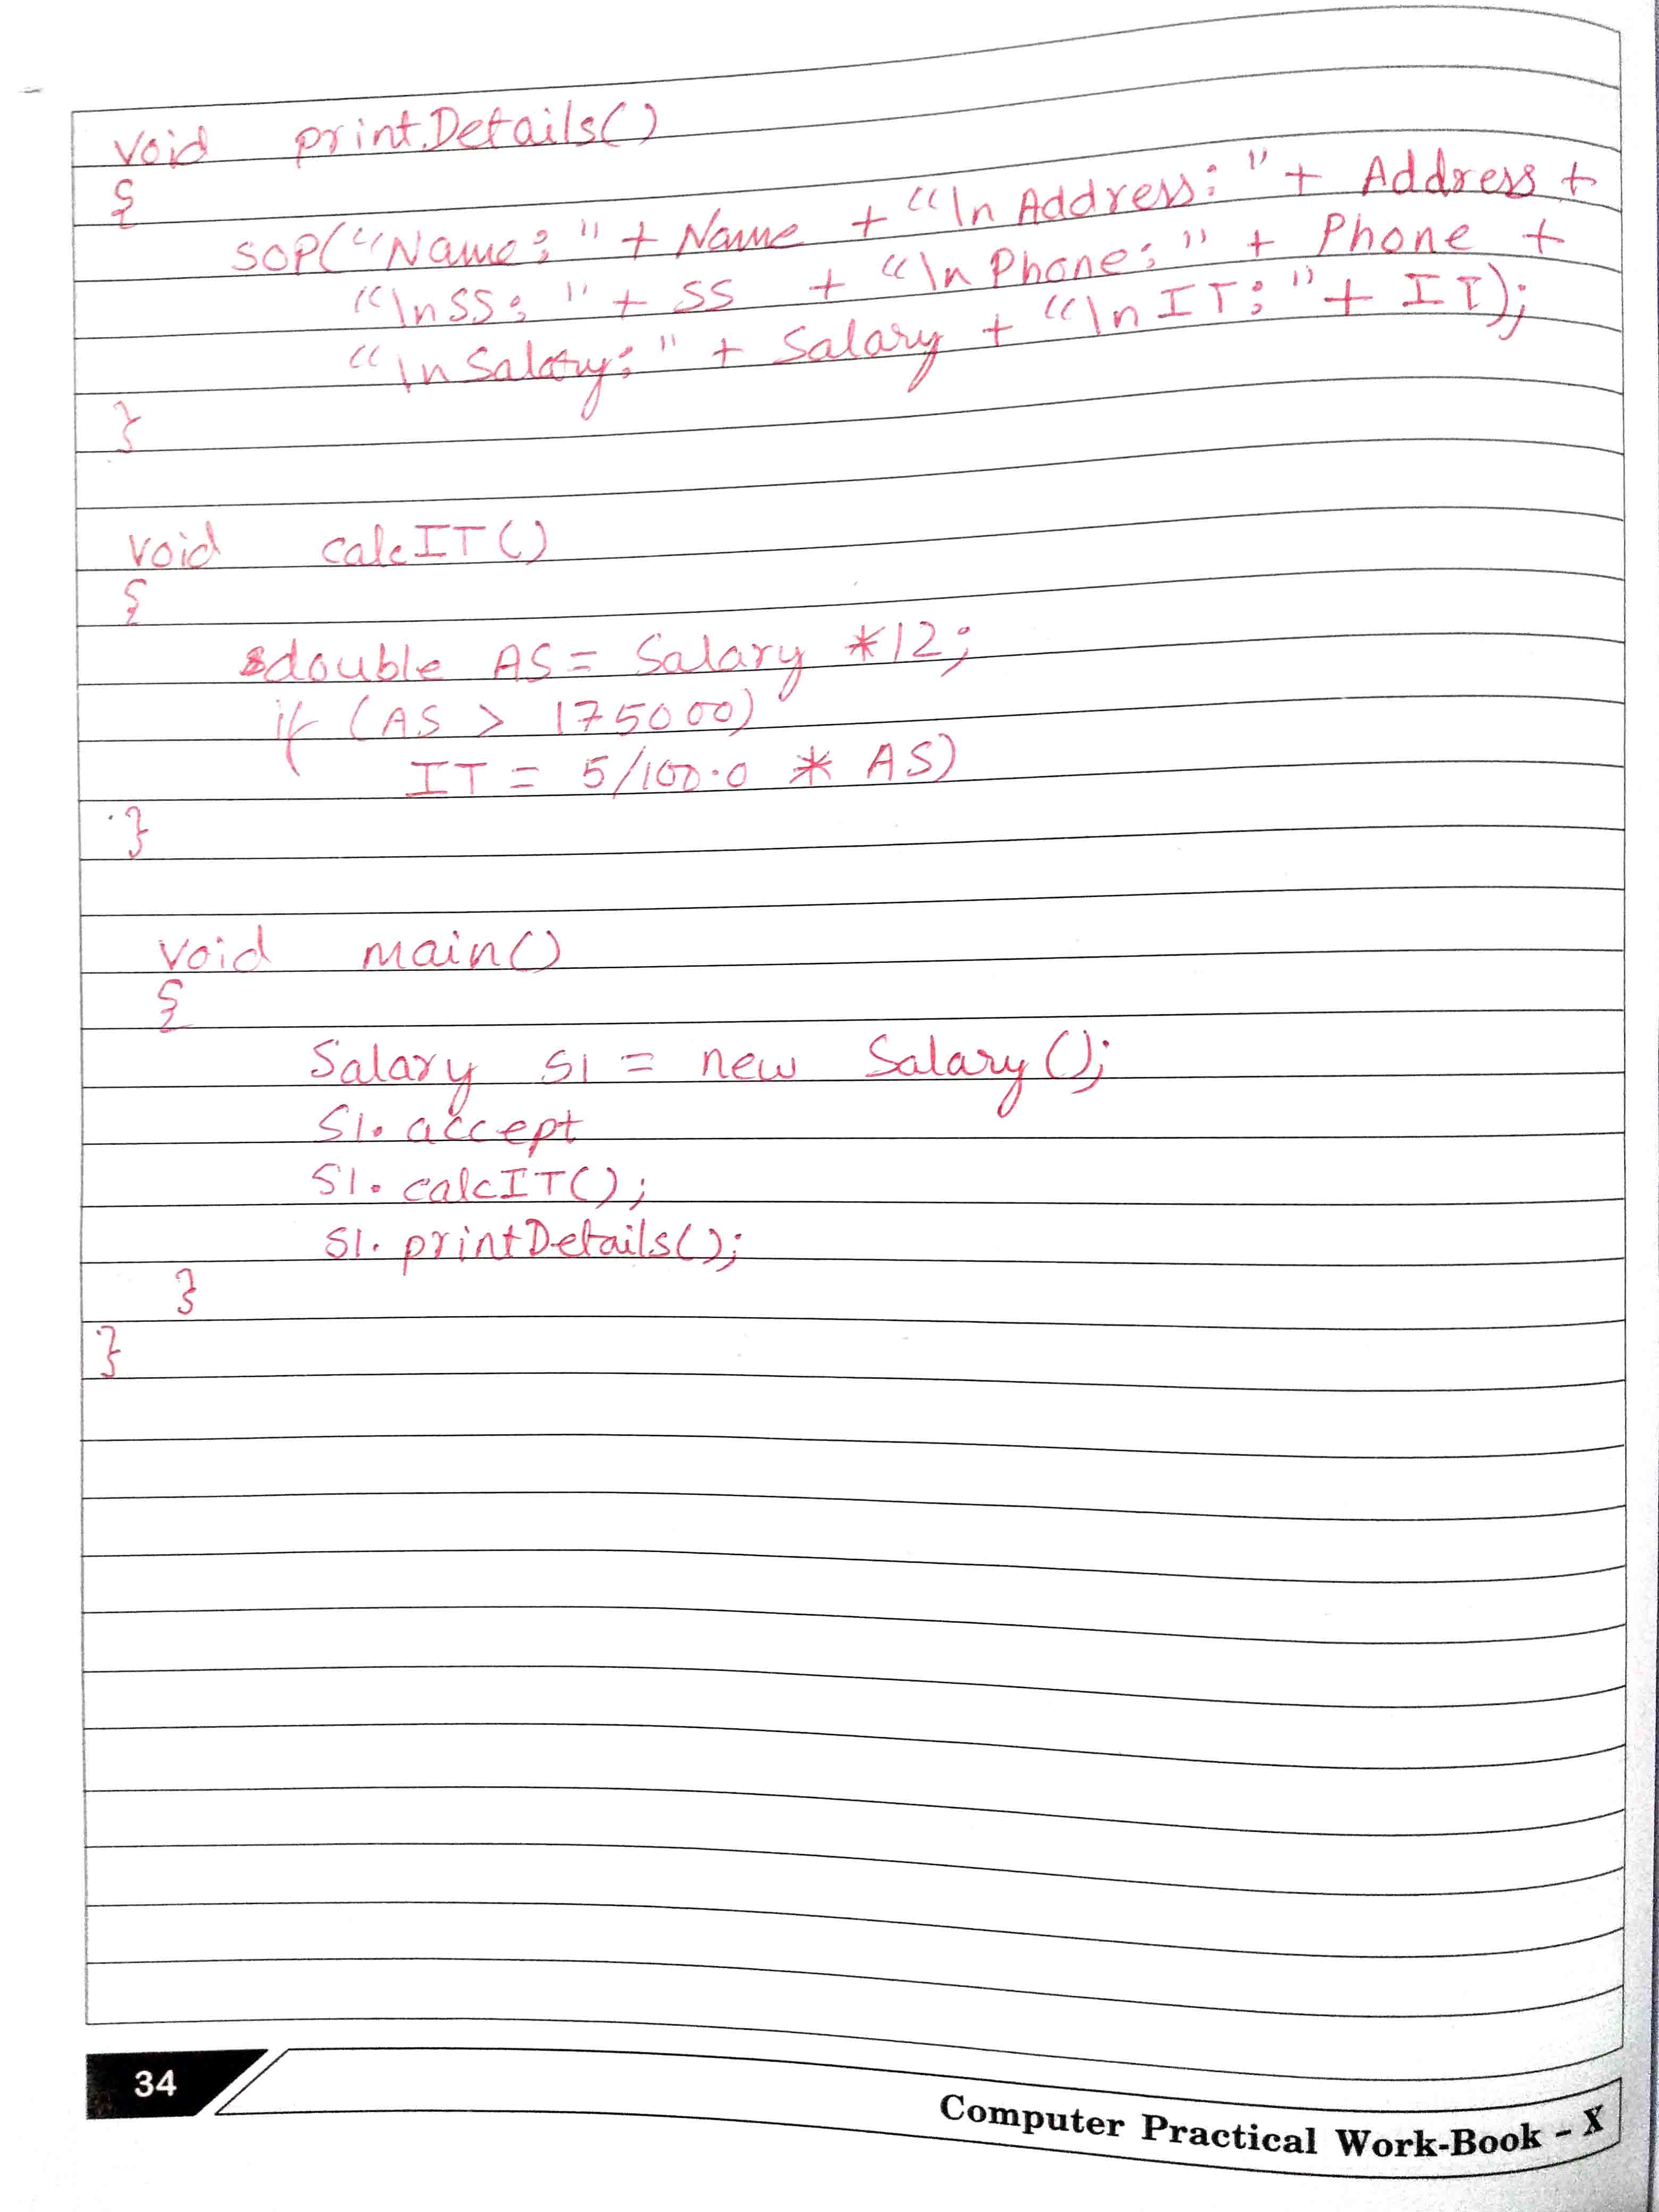 void printDetails()
{
SOP("Name: " + Name + "\n Address: " + Address +
"\n SS: " + SS + "\n Phone: " + Phone +
"\n Salary: " + Salary + "\n IT: " + IT);
}
void calcIT()
{
double AS = Salary *12;
if (AS > 175000)
IT = 5/100.0 * AS)
}
void main()
{
Salary S1 = new Salary();
S1. accept
S1. calcIT();
S1. printDetails();
}
}
34
Computer Practical Work-Book - X